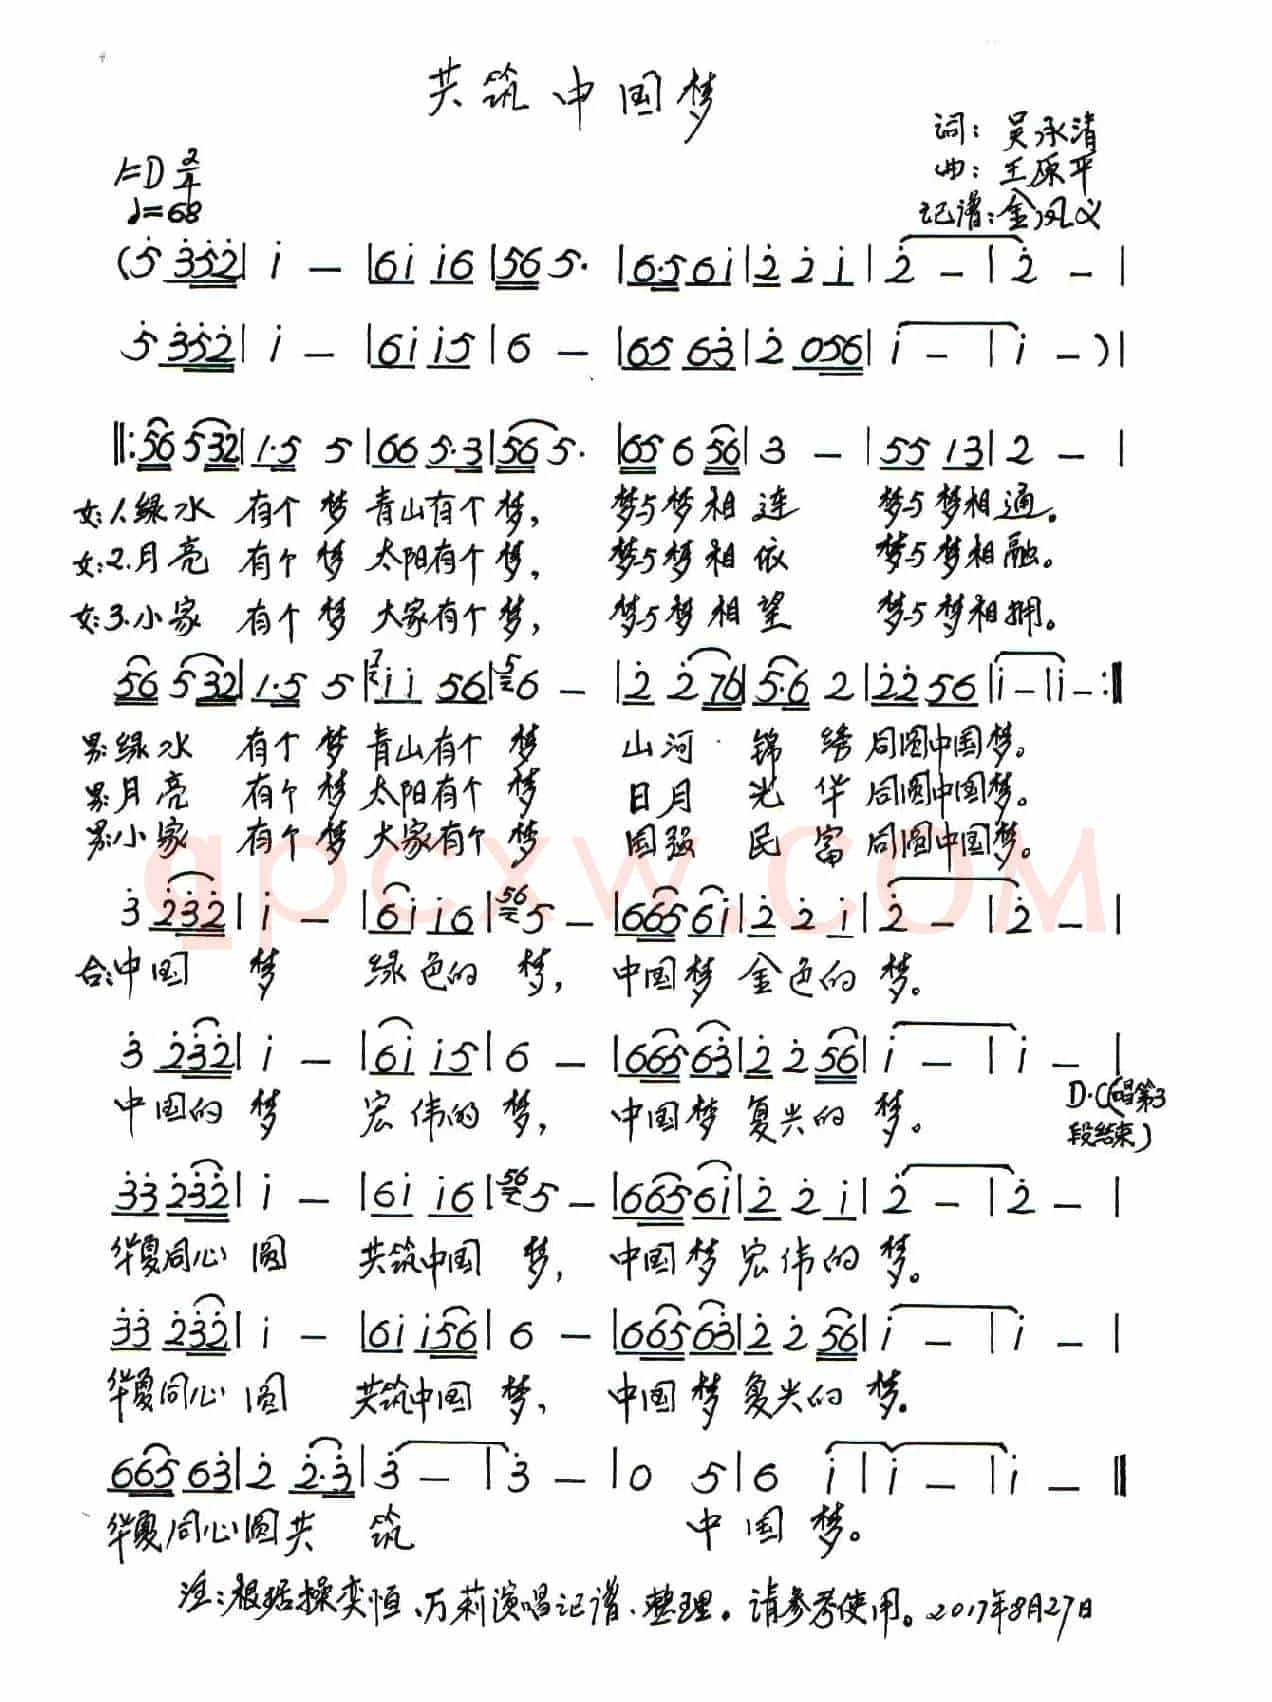 共筑中国梦
词：吴永清
1=D 2/4
曲：王原平
♩=68
记谱：金凤义
(5̇ 3̇5̇2̇| i － |6i i6 |56 5· |6·5 6i| 2̇ 2̇ i | 2̇ － | 2̇ － |
5̇ 3̇5̇2̇| i － |6i i5 | 6 － |65 63̇| 2̇ 056| i － | i － )|
‖:56 532| 1·5 5 |66 5·3|56 5· |65 6 56| 3 － | 55 13| 2 － |
女:1.绿水 有个 梦 青山有个 梦， 梦与梦相 连 梦与梦相通。
女:2.月亮 有个 梦 太阳有个 梦， 梦与梦相 依 梦与梦相融。
女:3.小家 有个 梦 大家有个 梦， 梦与梦相 望 梦与梦相拥。
56 532| 1·5 5 |7ii 56 |56 － | 2̇ 2̇76| 5·6 2 | 2̇2̇ 56 |i－|i－:‖
男:绿水 有个 梦 青山有个 梦 山河 锦 绣 同圆中国梦。
男:月亮 有个 梦 太阳有个 梦 日月 光 华 同圆中国梦。
男:小家 有个 梦 大家有个 梦 国强 民 富 同圆中国梦。
qpcxw.com
3̇ 2̇3̇2̇| i － |6i i6 |565 － |665 6i| 2̇ 2̇ i | 2̇ － | 2̇ － |
合:中国 梦 绿色的 梦， 中国梦 金色的 梦。
3̇ 2̇3̇2̇| i － |6i i5 | 6 － |665 63̇| 2̇ 2̇ 56| i － | i － |
中国的 梦 宏伟的 梦， 中国梦 复兴的 梦。
D.C(唱第3
段结束)
3̇3̇ 2̇3̇2̇| i － |6i i6 |565 － |665 6i| 2̇ 2̇ i | 2̇ － | 2̇ － |
华夏同心 圆 共筑中国 梦， 中国梦 宏伟的 梦。
3̇3̇ 2̇3̇2̇| i － |6i i56| 6 － |665 63̇| 2̇ 2̇ 56| i － | i － |
华夏同心 圆 共筑中国 梦， 中国梦 复兴的 梦。
665 63̇| 2̇ 2̇·3̇| 3̇ － | 3̇ － | 0 5 | 6 i | i － | i － ‖
华夏同心圆共 筑 中国 梦。
注：根据操奕恒、万莉演唱记谱、整理。请参考使用。2017年8月27日